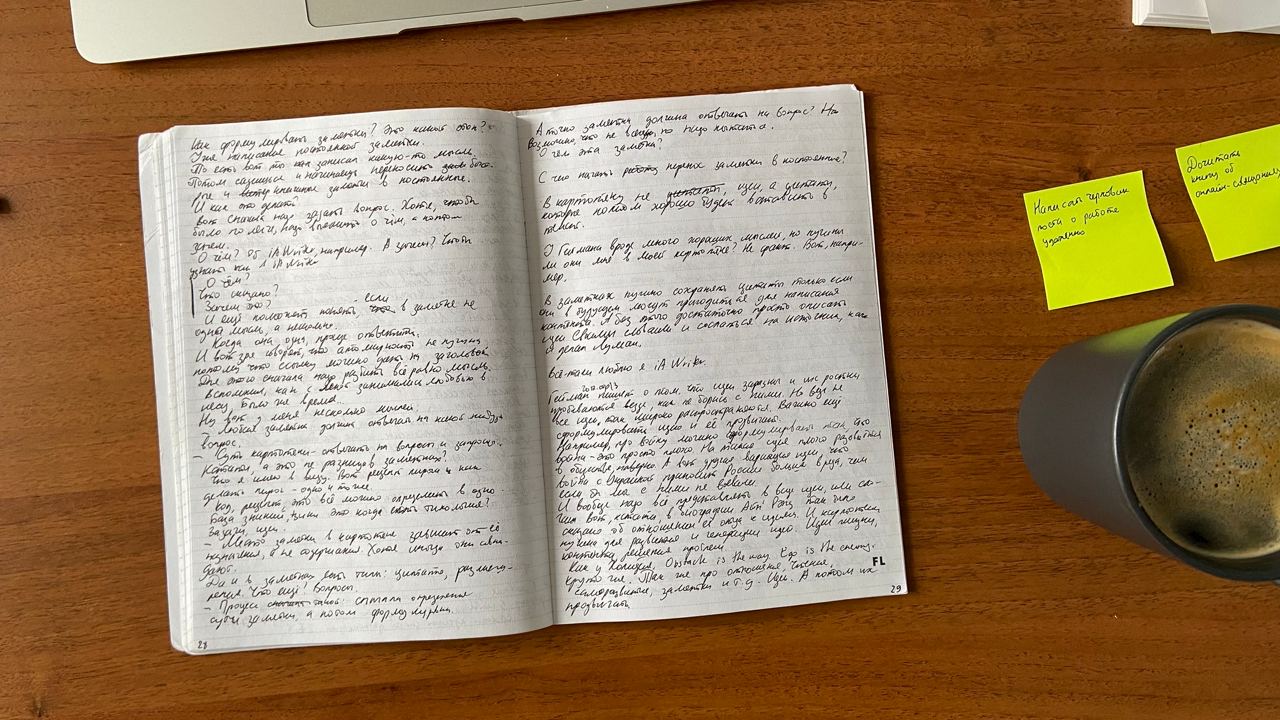 Как формулировать заметки? Это какой этап?
Уже написание постоянной заметки.
То есть вот ты как записал какую-то мысль.
Потом садишься и начинаешь переносить
рые и заметки в постоянные.
И как это делать?
Вот сначала надо задать вопрос. Хотя, чтобы
было легче, надо вспомнить о чём, а потом
зачем.
О чём? Об iA Writer, например. А зачем? Чтобы
узнать как в iA Writer
О чём?
Что сказано?
Зачем это?
И ещё поможет понять, если в заметке не
одна мысль, а несколько.
Когда она одна, проще ответить.
И вот зря говорят, что атомарность не нужна,
потому что ссылку можно дать на заголовок.
Для этого сначала надо разбить всё равно мысль.
Вспомнил, как с занимались любовью в
лесу, было же время..
Ну вот у меня несколько мыслей.
— Любая заметка должна отвечать на какой-нибудь
вопрос.
— Суть картотеки – отвечать на вопросы и запросы.
Кстати, а это не разница в заметках?
Что я имею в виду. Вот рецепт пирога и как
делать пирог – одно и то же.
Код, рецепт, это всё можно определить в одно
база знаний, вики. Это когда типология?
Базару идеи.
— Место заметки в картотеке зависит от её
назначения, а не содержания. Хотя иногда они совпа-
дают.
Да и в заметках есть типы: цитата, размыш-
ления. Что ещё? Вопросы.
— Процесс такой: сначала определение
сути заметки, а потом формулировка.
28
А точно заметка должна отвечать на вопрос? Не
Возможно, что не всегда, но надо пытаться.
О чём эта заметка?
С чего начать перенос заметки в постоянные?
В картотеку не идеи, а цитаты,
которые потом хорошо будет вставить в
У Геймана вроде много хороших мыслей, но нужны
ли они мне в моей картотеке? Не факт. Вот, напри-
мер.
В заметках нужно сохранять цитаты только если
они в будущем могут пригодиться для написания
контента. А без этого достаточно просто описать
идеи своими словами и сослаться на источник, как
и делал Луман.
Всё-таки люблю я iA Writer.
Гейман пишет о том, что идеи заразны и их ростки
пробиваются везде, как не борись с ними. Но ведь не
все идеи так широко распространяются. Важно ещё
сформулировать идею и её продвигать.
Например, про войну можно сформулировать так, что
война – это просто плохо. Но такие идеи плохо развиваются
в обществе, наверно. А вот другая вариация идеи, что
война с Украиной приносит России больше вреда, чем
если бы мы с ними не воевали.
И вообще надо всё представлять в виде идеи, или
Вот, кстати, в биографии Айн Рэнд там было
сказано об отношении её отца к идеям. И картотека
нужна для развития и генерации идей. Идеи
контента, решения проблем.
Как у Холидея, Obstacle is the way. Ego is the enemy.
Круто же. Так же про отношения, чтение,
саморазвитие, заметки и т.д. Идеи. А потом их
продвигать.
FL
29
Написать черновик
поста о работе
удаленно
Дочитать
книгу об